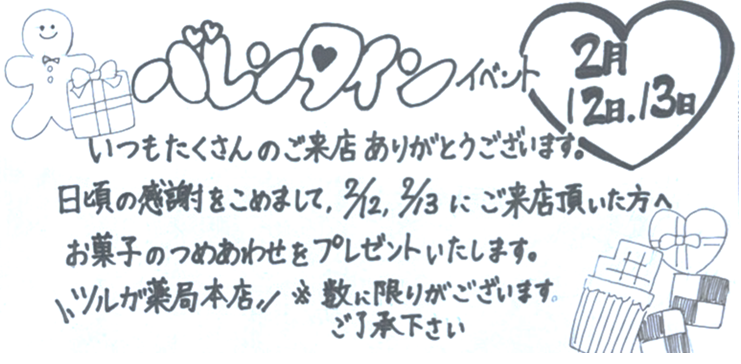 バレンタインイベント
2月
12日.13日
いつもたくさんのご来店ありがとうございます。
日頃の感謝をこめまして、2/12, 2/13 にご来店頂いた方へ
お菓子のつめあわせをプレゼントいたします。
\\ツルガ薬局本店// ※数に限りがございます。
ご了承下さい